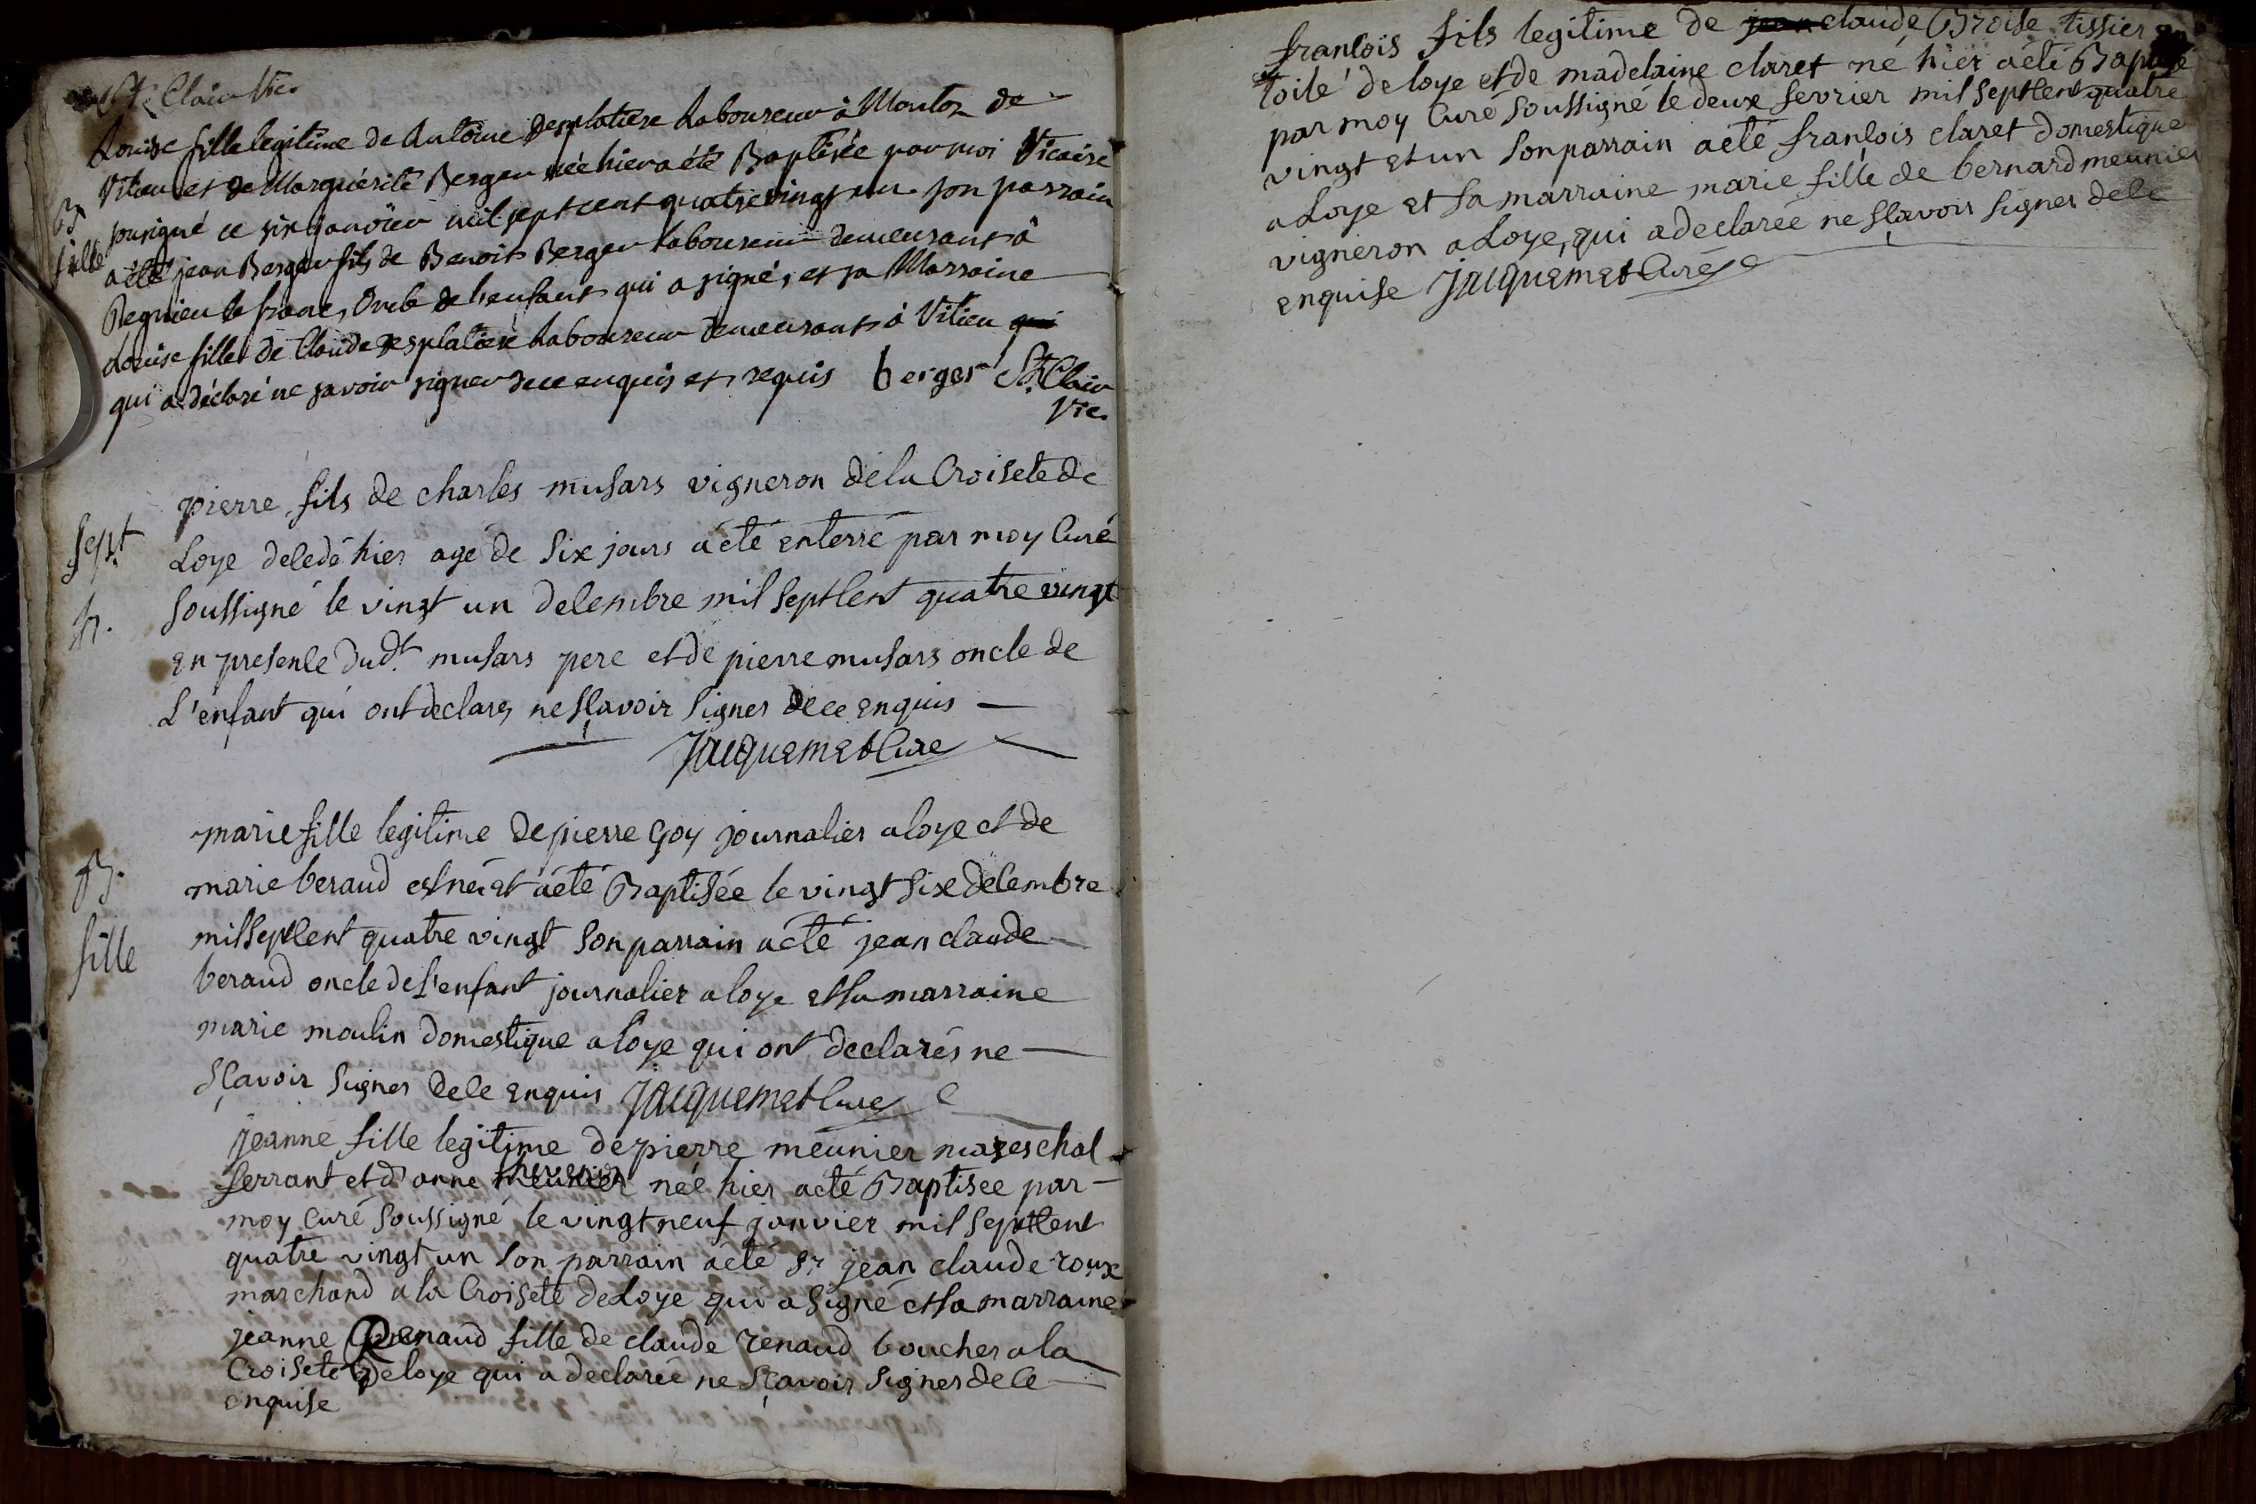 St. Clair Vic.
Louise fille legitime de Antoine Desplatiere Laboureur à Monton de
Vilieu et de Marguérite Berger née hier a été Baptisée par moi Vicaire
B
fille
sousigné ce six janvier mil sept cent quatre vingt un son parrain
a été jean Berger fils de Benoit Berger laboureur demeurant à
Regnieu le franc, Oncle de l'enfant qui a signé, et sa Marraine
Louise fille de Claude Desplatiere Laboureur demeurant à Vilieu qui
qui a déclaré ne savoir signer de ce enquis et requis berger St. Clair
Vic.
pierre fils de charles musars vigneron de la Croisete de
Sept
Loye decedé hier agé de six jours a été enterré par moy Curé
h.
soussigné le vingt un decembre mil sept cent quatre vingt
en presence dudt. musars pere et de pierre musars oncle de
L'enfant qui ont declarez ne sçavoir signer de ce enquis
Jacquemet Curé
marie fille legitime de pierre Goy journalier a loye et de
B.
marie beraud est née et a été Baptisée le vingt six decembre
fille
mil sept cent quatre vingt son parrain a été jean claude
beraud oncle de l'enfant journalier a loye et sa marraine
marie moulin domestique a loye qui ont declarés ne
sçavoir signer de ce enquis Jacquemet Curé
jeanne fille legitime de pierre meunier mareschal
ferrant et d'anne née hier a été Baptisee par
moy Curé soussigné le vingt neuf janvier mil sept cent
quatre vingt un son parrain a été sr jean claude roux
marchand a la Croisete de Loye qui a signé et sa marraine
jeanne Renaud fille de claude renaud boucher a la
Croisete de loye qui a declarée ne sçavoir signer de ce
enquise
françois fils legitime de jean claude Broise tissier en
toile de loye et de madelaine claret né hier a été Baptisé
par moy Curé soussigné le deux fevrier mil sept cent quatre
vingt et un son parrain a été françois claret domestique
a Loye et sa marraine marie fille de bernard meunier
vigneron a Loye, qui a declarée ne sçavoir signer de ce
enquise Jacquemet Curé